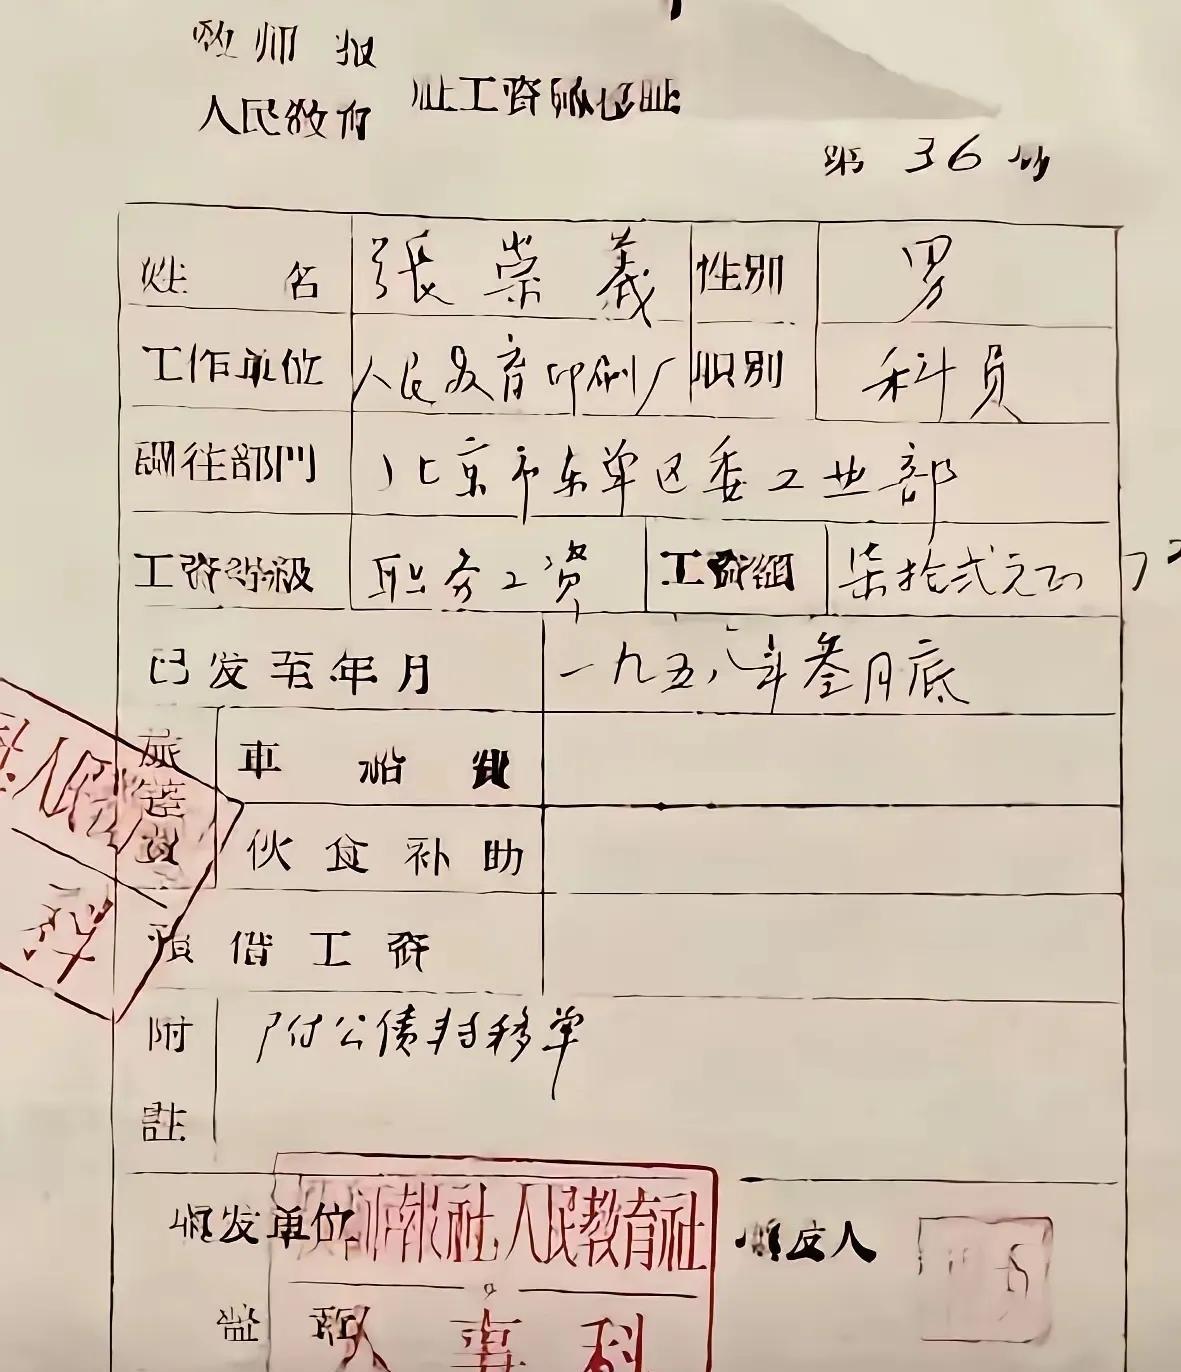 教师报
人民教育 社工资转移证
第 36 号
姓名 張崇義 性别 男
工作单位 人民教育印刷厂 职别 科员
调往部门 北京市东单区委工业部
工资等級 职务工资 工资額 柒拾弍元
已发至年月 一九五八年叁月底
旅途费 車船費
伙食补助
預借工资
附註 附公债转移单
填发单位 教师報社人民教育社 填发人
盖 人事科